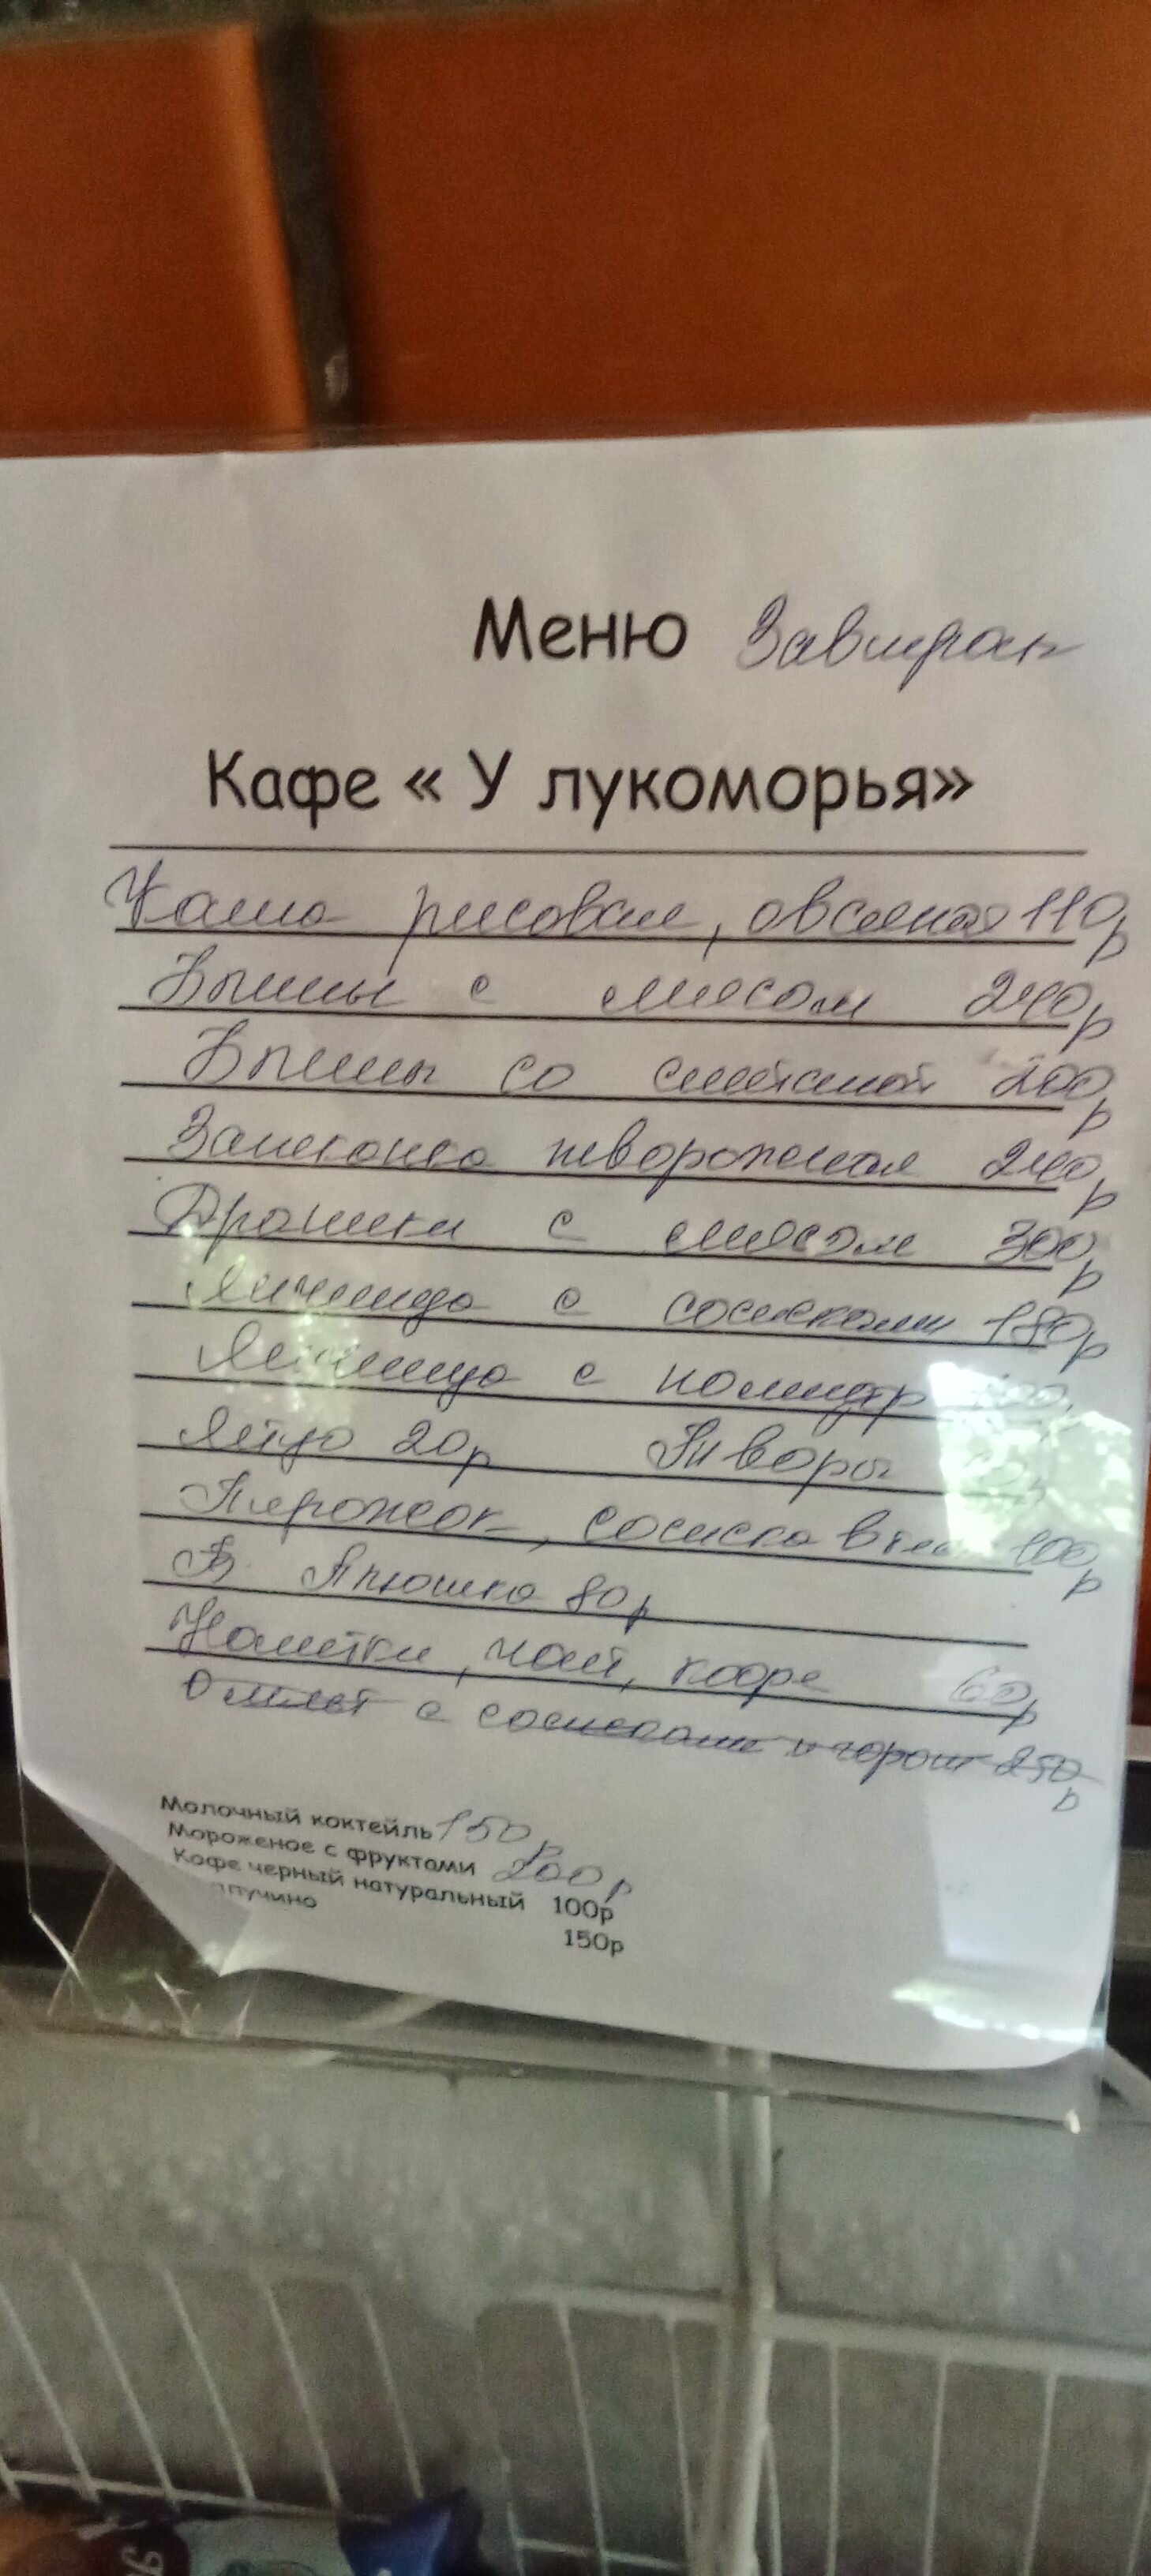 Меню Завтрак
Кафе « У лукоморья»
Каша рисовая, овсяная 110р
Блины с мясом 240р
Блины со сметаной 200р
Запеканка творожная 240р
Драники с мясом 300р
Яичница с сосисками 180р
Яичница с помидор
Яйцо 20р
Пирожок, сосиска в 100р
Плюшка 80р
Напитки, чай, кофе 60р
Омлет с сосисками и горош 250р
Молочный коктейль 150р
Мороженое с фруктами 200р
Кофе черный натуральный 100р
150р